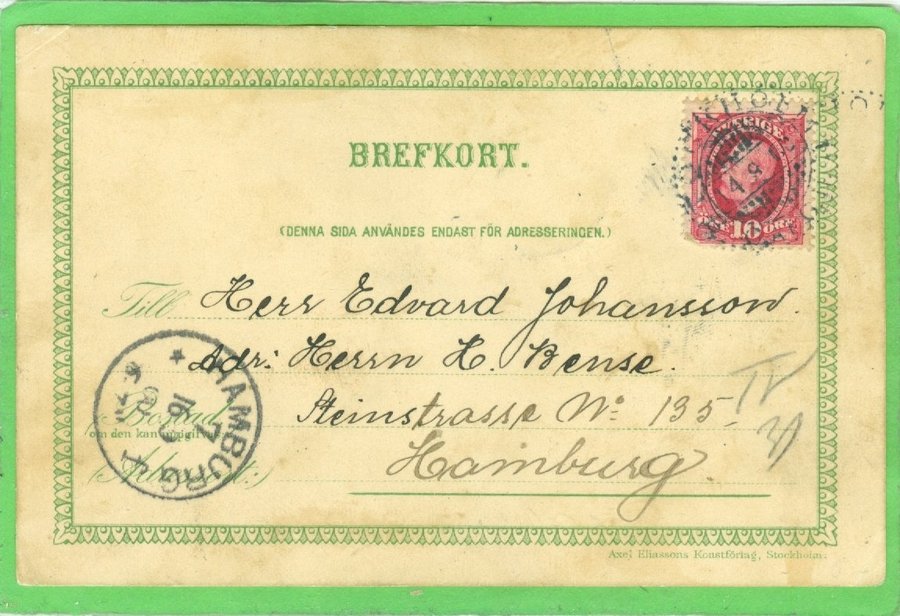 BREFKORT.
(DENNA SIDA ANVÄNDES ENDAST FÖR ADRESSERINGEN.)
SVERIGE
10 ÖRE
Till Herr Edvard Johansson.
Adr: Herrn H. Bense.
Steinstrasse No 135
Hamburg
Bostad
om den kan
HAMBURG 1
Axel Eliassons Konstförlag, Stockholm.